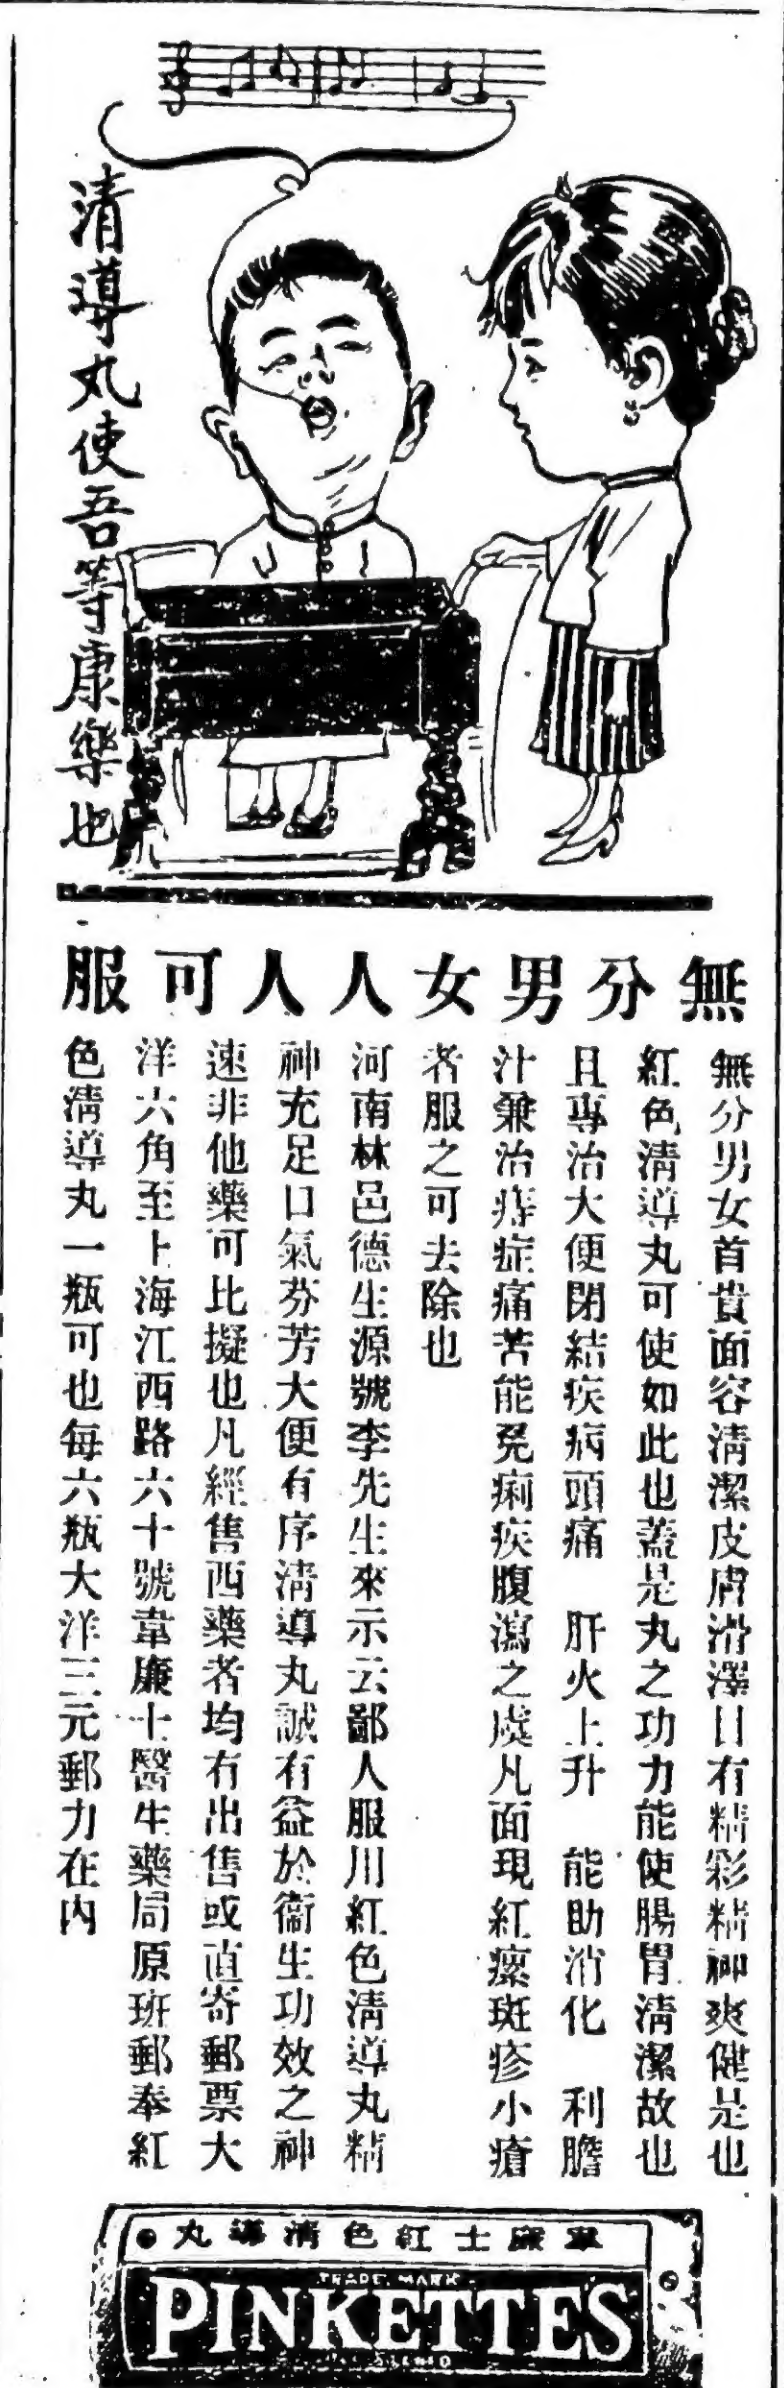 清導丸使吾等康樂也
無分男女人人可服
無分男女首貴面容清潔皮膚滑澤目有精彩精神爽健是也
紅色清導丸可使如此也蓋是丸之功力能使腸胃清潔故也
且專治大便閉結疾病頭痛 肝火上升 能助消化 利膽
汁兼治痔症痛苦能免痢疾腹瀉之虞凡面現紅瘰斑疹小瘡
者服之可去除也
河南林邑德生源號李先生來示云鄙人服用紅色清導丸精
神充足口氣芬芳大便有序清導丸誠有益於衞生功效之神
速非他藥可比擬也凡經售西藥者均有出售或直寄郵票大
洋六角至上海江西路六十號韋廉士醫生藥局原班郵奉紅
色清導丸一瓶可也每六瓶大洋三元郵力在內
韋廉士紅色清導丸
TRADE MARK
PINKETTES